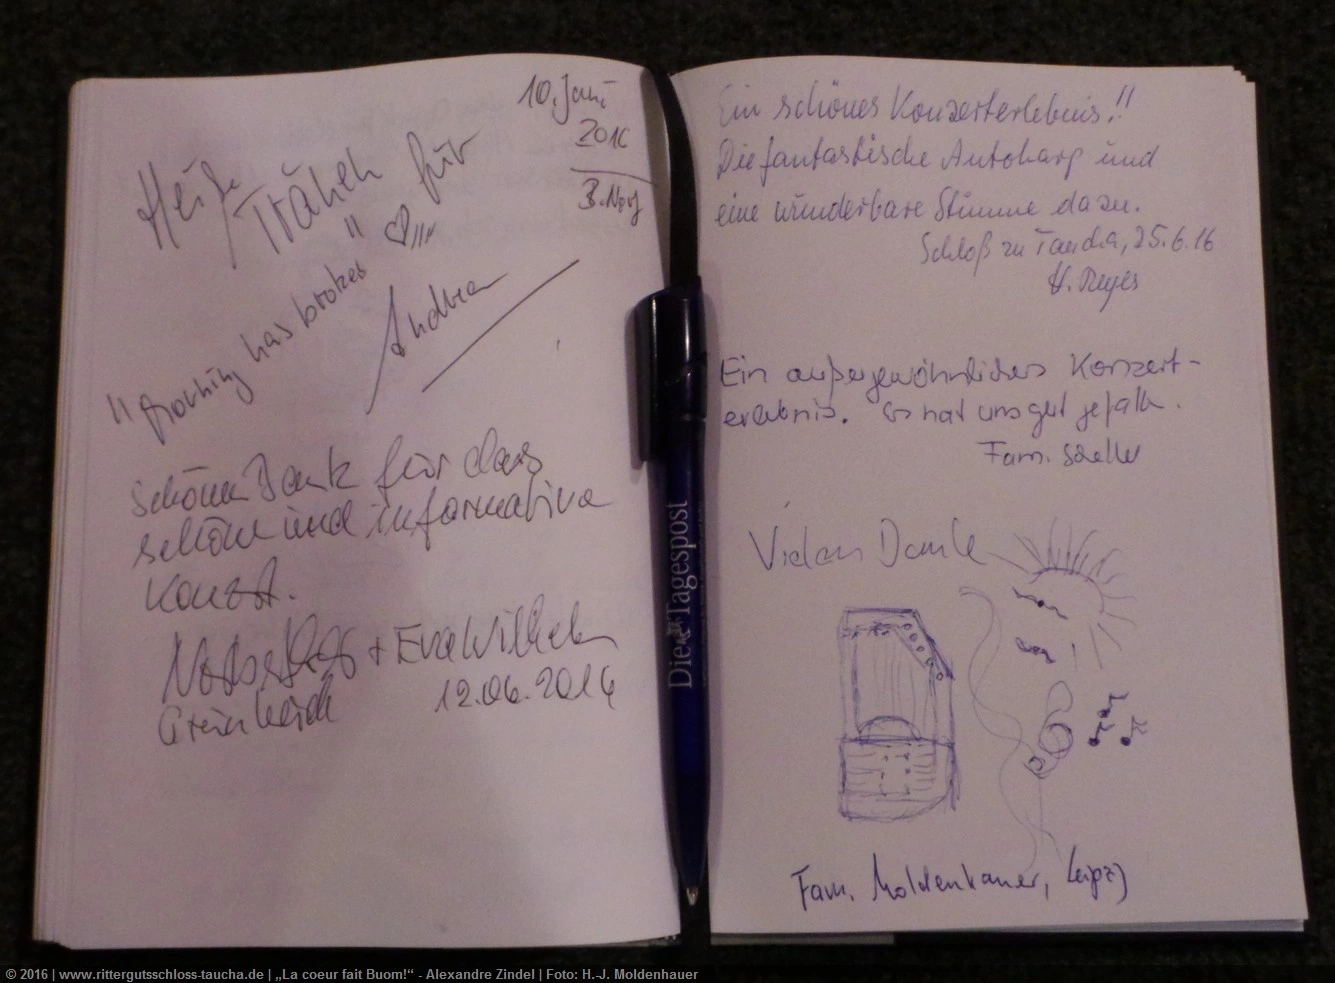 10. Juni
2016
Heiße Tränen für
"Morning has broken"
Andrea
Schönen Dank für das
schöne und informative
Konzert.
+ Eva Wilhelm
12.06.2016
Die Tagespost
Ein schönes Konzerterlebnis!!
Die fantastische Autoharp und
eine wunderbare Stimme dazu.
Schloß zu Taucha, 25.6.16
H.
Ein außergewöhnliches Konzert-
erlebnis. Es hat uns gut gefalln.
Fam.
Vielen Dank
Fam. Moldenhauer, Leipzg
© 2016 | www.rittergutsschloss-taucha.de | „La coeur fait Buom!“ - Alexandre Zindel | Foto: H.-J. Moldenhauer